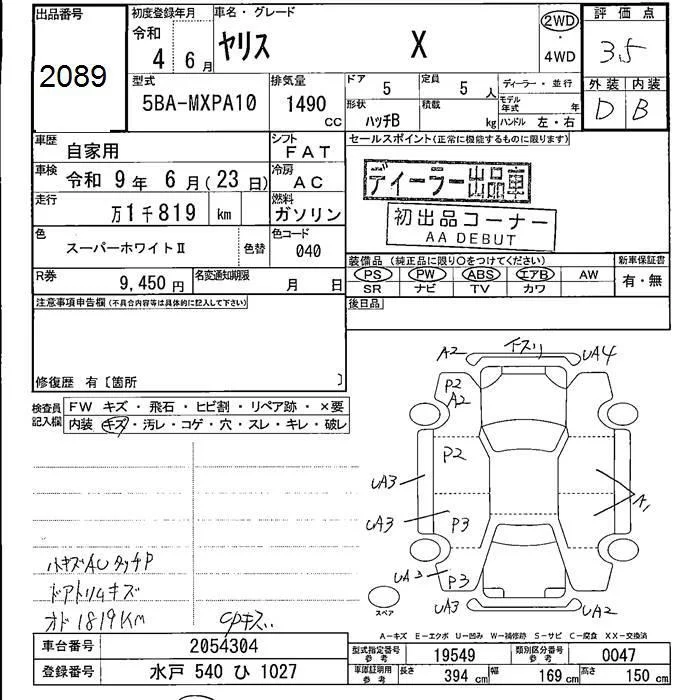 出品番号
2089
初度登録年月
令和
4年 6月
車名・グレード
ヤリス X
2WD
・
4WD
評価点
3.5
外装 内装
D B
型式
5BA-MXPA10
排気量
1490
CC
ドア
5
定員
5 人
ディーラー・並行
形状
ハッチB
積載
kg
モデル年式
年
ハンドル 左・右
車歴
自家用
シフト
FAT
車検
令和 9年 6月(23日)
冷房
AC
走行
万1千819 km
燃料
ガソリン
色
スーパーホワイトⅡ
色替
色コード
040
R券
9,450 円
名変通知期限
月 日
セールスポイント(正常に機能するものに限ります)
ディーラー出品車
初出品コーナー
AA DEBUT
装備品 (純正品に限り○をつけてください)
PS PW ABS エアB AW
SR ナビ TV カワ
新車保証書
有・無
後日品
注意事項申告欄(不具合内容等は具体的に記入して下さい)
修復歴 有〔箇所 〕
検査員記入欄
FW キズ・飛石・ヒビ割・リペア跡・×要
内装 キズ・汚レ・コゲ・穴・スレ・キレ・破レ
ハトキズAUタッチP
ドアトリムキズ
オド1819Km
CPキズ
A2
イスリ
UA4
P2
A2
P2
UA3
UA3
P3
A1
UA2
P3
スペア
UA3
UA2
A−キズ E−エクボ U−凹み W−補修跡 S−サビ C−腐食 XX−交換済
車台番号
2054304
登録番号
水戸 540 ひ 1027
型式指定番号
参考
19549
類別区分番号
参考
0047
車庫証明用
参考
長さ
394 cm
幅
169 cm
高さ
150 cm